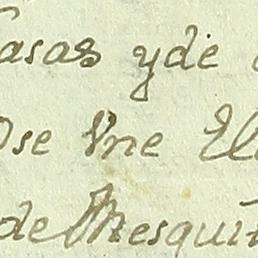 asas yde
Ose Vne El
de Mesquit